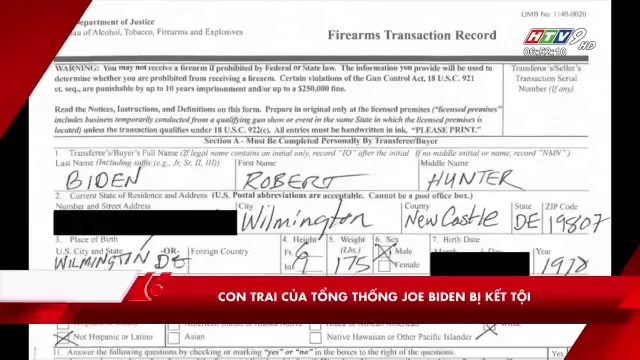 OMB No. 1140-0020
Department of Justice
Bureau of Alcohol, Tobacco, Firearms and Explosives
Firearms Transaction Record
HTV9 HD
06:52:10
WARNING: You may not receive a firearm if prohibited by Federal or State law. The information you provide will be used to
determine whether you are prohibited from receiving a firearm. Certain violations of the Gun Control Act, 18 U.S.C. 921
et. seq., are punishable by up to 10 years imprisonment and/or up to a $250,000 fine.
Transferor's/Seller's
Transaction Serial
Number (If any)
Read the Notices, Instructions, and Definitions on this form. Prepare in original only at the licensed premises ("licensed premises"
includes business temporarily conducted from a qualifying gun show or event in the same State in which the licensed premises is
located) unless the transaction qualifies under 18 U.S.C. 922(c). All entries must be handwritten in ink. "PLEASE PRINT."
Section A - Must Be Completed Personally By Transferee/Buyer
1. Transferee's/Buyer's Full Name (If legal name contains an initial only, record "IO" after the initial. If no middle initial or name, record "NMN".)
Last Name (Including suffix (e.g., Jr, Sr, II, III)) First Name Middle Name
BIDEN ROBERT HUNTER
2. Current State of Residence and Address (U.S. Postal abbreviations are acceptable. Cannot be a post office box.)
Number and Street Address City County State ZIP Code
Wilmington New Castle DE 19807
3. Place of Birth 4. Height 5. Weight 6. Sex 7. Birth Date
U.S. City and State -OR- Foreign Country Ft. (Lbs.) Male Month Year
WILMINGTON DE In. 9 175 Female 1970
CON TRAI CỦA TỔNG THỐNG JOE BIDEN BỊ KẾT TỘI
Not Hispanic or Latino Asian Native Hawaiian or Other Pacific Islander White
11. Answer the following questions by checking or marking "yes" or "no" in the boxes to the right of the questions.